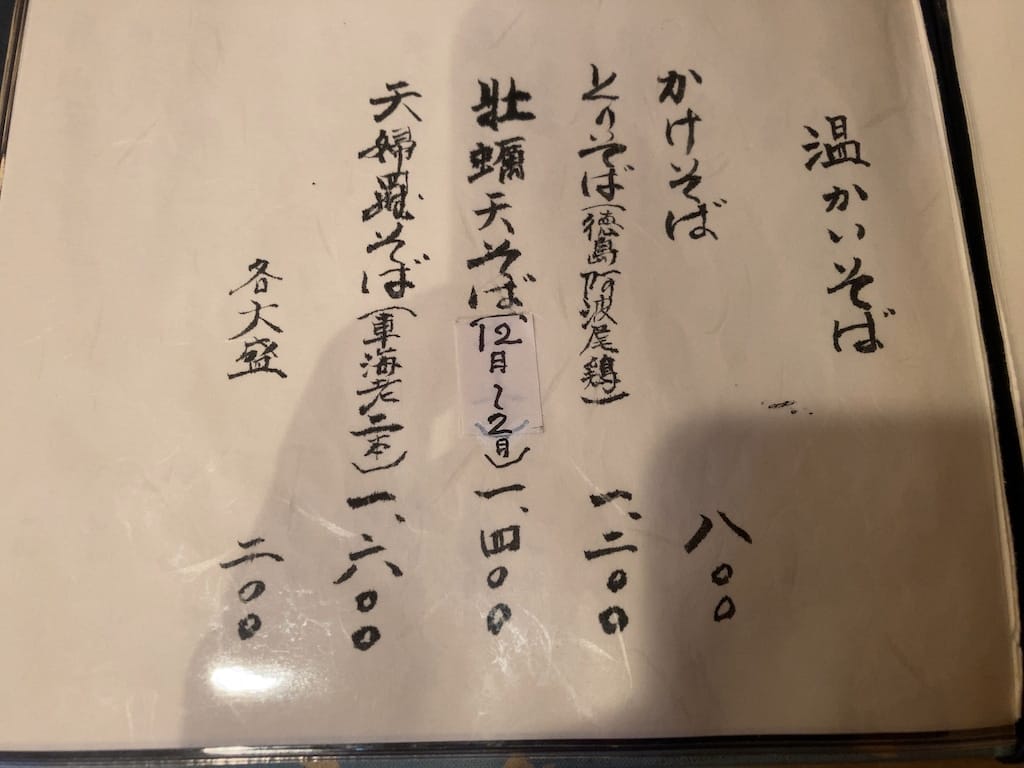 温かいそば
かけそば 八〇〇
とりそば(徳島阿波尾鶏) 一、二〇〇
牡蠣天そば(12月~2月) 一、四〇〇
天婦羅そば(車海老二本) 一、六〇〇
各大盛 二〇〇